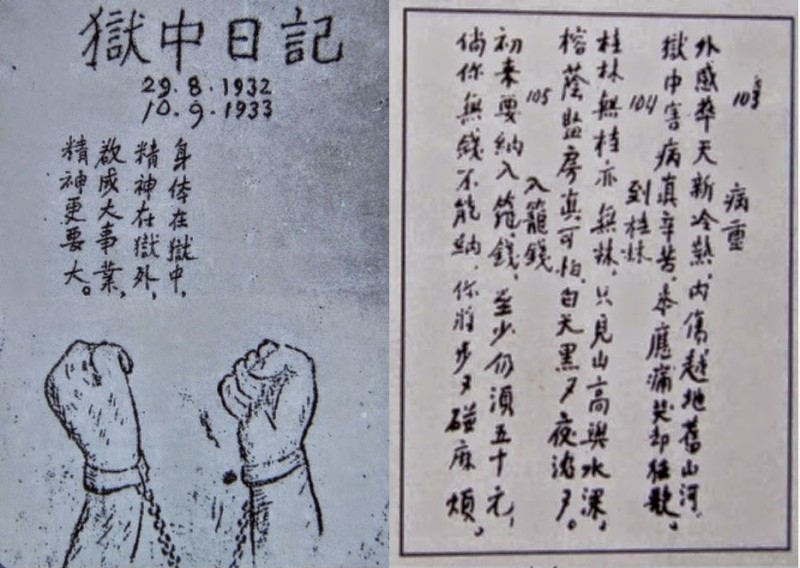 獄中日記
29.8.1932
10.9.1933
身体在獄中,
精神在獄外,
欲成大事業,
精神更要大。
103
病重
外感華天新冷熱,內傷越地舊山河,
獄中害病真辛苦,本應痛哭却狂歌。
104
到桂林
桂林無桂亦無林,只見山高與水深,
榕蔭監房真可怕,白天黑々夜沉々。
105
入籠錢
初来要納入籠錢,至少仍須五十元,
倘你無錢不能納,你將步々碰麻煩。